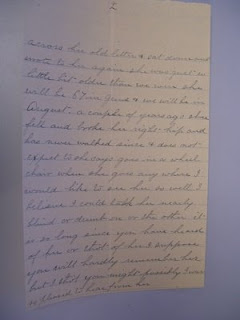 2
across her old letter & sat down and
wrote to her again she was just a
little bit older than we were she
will be 67 in June & we will be in
August. a couple of years ago she
fell and broke her right hip and
has never walked since & does not
expect to always goes in a wheel
chair when she goes any where I
would like to see her so well I
believe I could talk her nearly
blind or drunk one or the other it
is so long since you have heard
of her or thot of her I suppose
you will hardly remember her
but I thot you might possibly I was
so pleased to hear from her